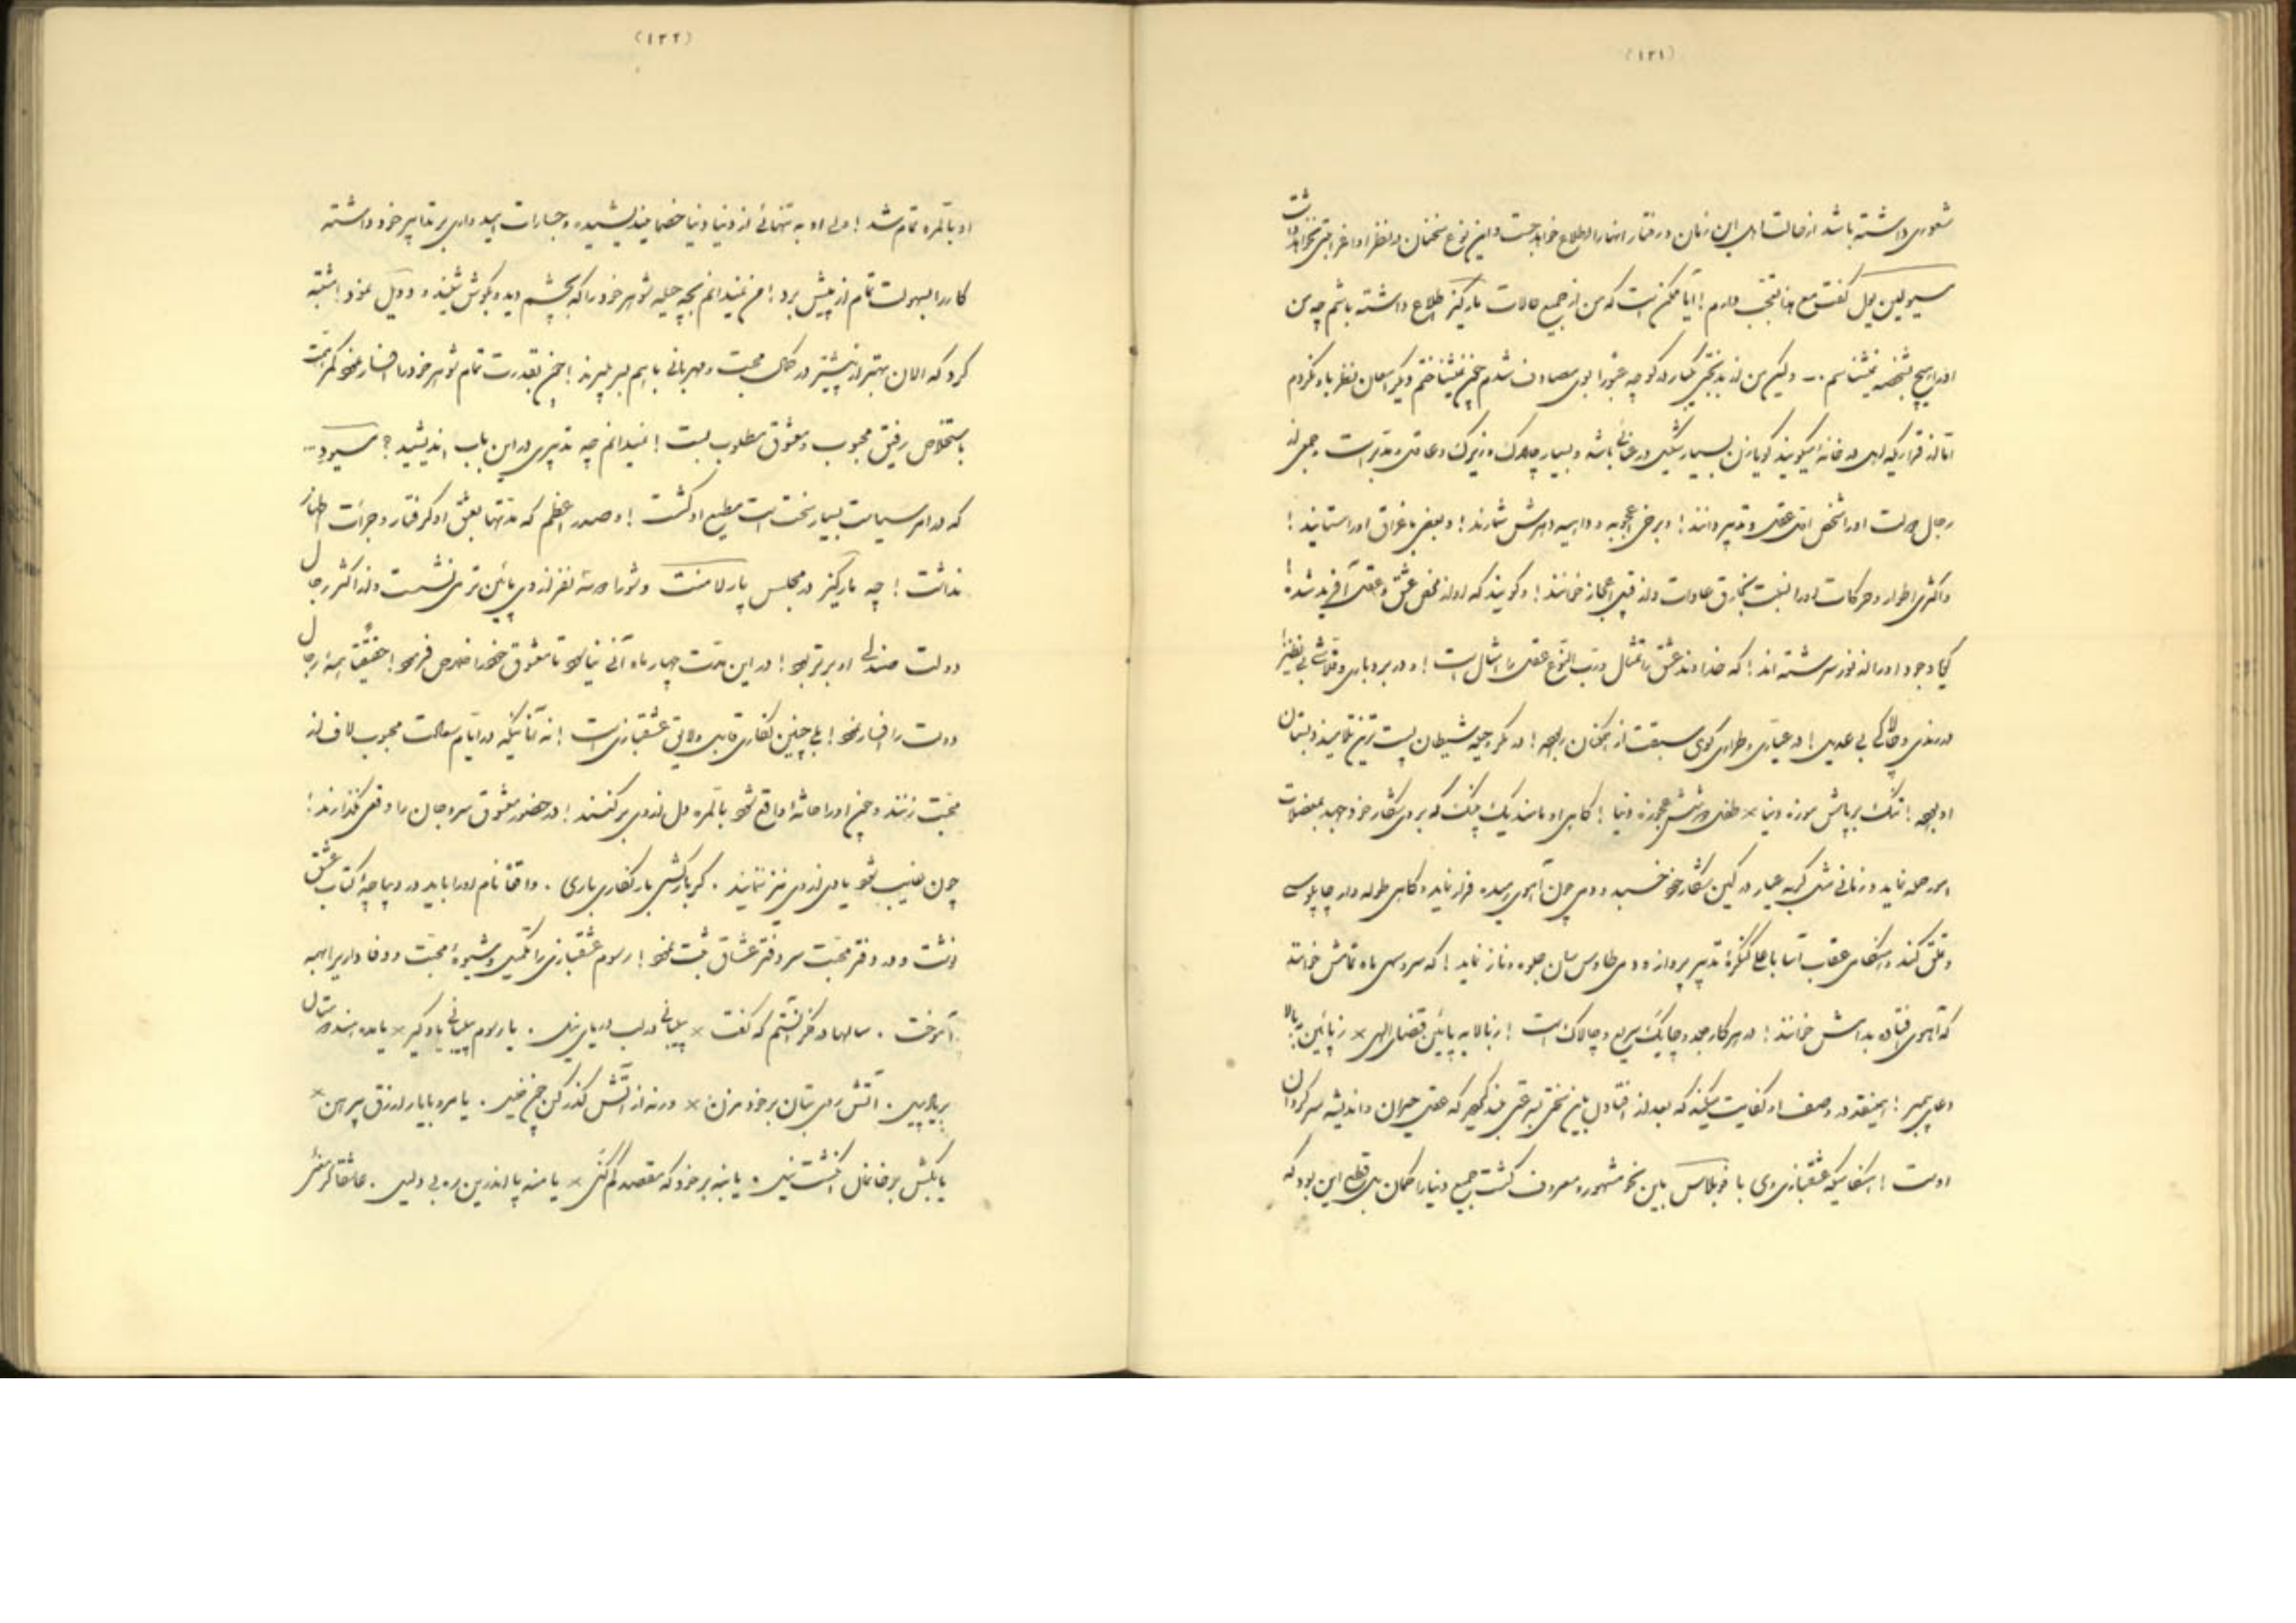 (۱۲۱)
شعوری داشته باشد از حالت اهل این زمان و رفتار انها را اطلاع خواهد جست و این نوع سخنان در نظر او اغرابتی نخواهد داشت
گفت مع هذا تعجب دارم ! آیا ممکن است که من از جمیع حالات مارکیز اطلاع داشته باشم چه من
او را هیچ بشخصه نمیشناسم ... ولیکن من از بدبختی یکبار در کوچه عبورا بوی مصادف شدم چون نمیشناختم دیگر امعان نظر باو نکردم
اما از قراریکه اهل خانه میگویند گویا زن بسیار شکیل و رعنائی باشد و بسیار چالاک و زیرک و عاقل و مدبر است و جمعی از
رجال دولت او را شخص اول عقل و تدبیر دانند ! و برخی اعجوبه و داهیه دهرش شمارند ! و بعضی باغراق او را ستایند !
و اکثری اطوار و حرکات او را نسبت بخارق عادات و از قبیل اعجاز خوانند ! و گویند که او از محض عشق و عقل آفریده شده !
گویا وجود او را از نور سرشته اند ! که خداوند عشق را تمثال و رب النوع عقل را مثال است ! و در بردباری و بی نظیر !
در رندی و چالاکی بی عدیل ! در عیاری و طراری گوی سبقت از همگنان ربوده ! در مکر و حیله شیطان پست ترین تلامیذ دبستان
او بوده ! تنگ بر پایش موزه دنیا × طفل در شش عجوزه دنیا ! گاهی او مانند یک پلنگ که بروی شکار خود جهد بمعضلات
امور حمله نماید و زمانی مثل گربه عیار در کمین شکار خود خسبد و دمی چون آهوی رمیده فرار نماید و گاهی طوله وار چاپلوسی
و تملق کند و هنگامی عقاب آسا باعلی کنگره تدبیر پرواز و دمی طاوس سان جلوه و ناز نماید ! که سرو سهی ماه تمامش خوانند
که آهوی افتاده بدامش خوانند ! در هر کار مجد و چابک سریع و چالاک است ! ز بالا به پائین قضای الهی × ز پائین ببالا
دعای پیمبر ! اینقدر در وصف او کفایت میکند که بعد از افتادن باین سختی تدبیری کرد که عقل حیران و اندیشه سرگردان
اوست ! هنگامیکه عشقبازی وی با دوبلاس باین نحو مشهور و معروف گشت جمیع دنیا را گمان بل قطع این بود که
(۱۲۲)
او بالمره تمام شد ! ولی او به تنهائی از دنیا و دنیا خصما نیندیشیده و جسارت امیدواری بر تدابیر خود داشته
کار را بسهولت تمام از پیش برد ! من نمیدانم بچه حیله شوهر خود را که بچشم دید و بگوش شنید و دوئل نمود ! مشتبه
کرد که الان بهتر از پیشتر در کمال محبت و مهربانی با هم بسر میبرند ! چون بقدرت تمام شوهر خود را افسار نمود کمر همت
باستخلاص رفیق محبوب و معشوق مطلوب بست ! نمیدانم چه تدبیری در این باب اندیشید ؟ مسیو د...
که در امر سیاست بسیار سخت است مطیع او گشت ! و صدر اعظم که مدتها بعشق او گرفتار و جرأت اظهار
نداشت ! چه مارکیز در مجلس پارلامنت و شورا دو سه نفر از وی پائین تر می نشست و از اکثر رجال
دولت صندلی او برتر بود ! در این مدت چهار ماه آنی نیاسود تا معشوق خود را خلاص فرمود ! حقیقة همه رجال
دولت را افسار نمود ! بلی چنین نگاری قابل و لایق عشقبازی است ! نه آنانیکه در ایام سعادت محبوب لاف از
محبت زنند و چون او را حادثه واقع شود بالمره دل از وی بر کنند ! در حضور معشوق سر و جان را وقعی نگذارند !
چون غایب شود یادی از وی نیز ننمایند . گر بار کشی بار نگاری باری . واقعا نام او را باید در دیباچه کتاب عشق
نوشت و در دفتر محبت سر دفتر عشاق ثبت نمود ! رسوم عشقبازی را تکمیل و شیوه محبت و وفاداری را همه
آموخت . سالها در فکر آنستم که گفت × پیلبانی در لب دریای نیل . یا رسوم پیلبانی یاد گیر × یا مده هندوستان
بر یاد پیل . آتش روی بتان بر خود مزن × ورنه از آتش گذر کن چون خلیل . یا مرو با یار ازرق پیرهن ×
یا بکش بر خانمان انگشت نیل . یا بنه بر خود که مقصد گم کنی × یا منه پا اندرین ره بی دلیل .